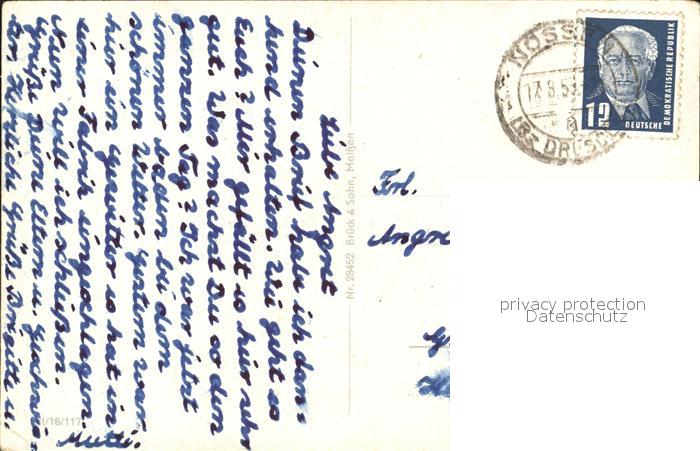 Liebe Angret
Deinen Brief habe ich dan-
kend erhalten. Wie geht es
Euch? Mir gefällt es hier sehr
gut. Was machst Du so den
ganzen Tag? Ich war jetzt
immer baden bei dem
schönen Wetter. Gestern war
hier ein Gewitter es hat in
einer Fabrik eingeschlagen.
Nun will ich schließen.
Grüße Deine Eltern u. Geschwi-
ster Herzliche Grüße Brigitte u.
Mutti.
Nr. 28452 Brück & Sohn, Meißen
I/18/117
Frl.
Angre
NOSSEN
17.8.53
(Bz. DRESDEN)
12
DEUTSCHE
DEMOKRATISCHE REPUBLIK
privacy protection
Datenschutz